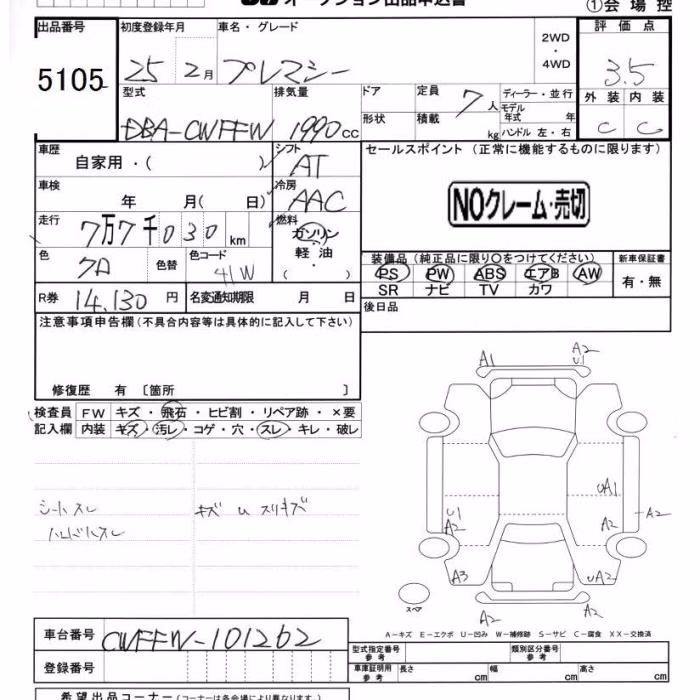 オークション出品申込書
①会場控
出品番号 初度登録年月 車名・グレード 2WD・4WD 評価点
5105 25 2月 プレマシー 3.5
型式 排気量 ドア 定員 7人 ディーラー・並行 外装 内装
DBA-CWFFW 1990cc 形状 積載 kg モデル年式 年 C C
ハンドル 左・右
車歴 シフト セールスポイント (正常に機能するものに限ります)
自家用・( ) AT
車検 冷房
年 月( 日) AAC NOクレーム・売切
走行 燃料
7万7千030km ガソリン
色 色替 色コード 軽油 装備品 (純正品に限り○をつけてください) 新車保証書
クロ 41W ・( ) PS PW ABS エアB AW 有・無
SR ナビ TV カワ
R券 14,130円 名変通知期限 月 日 後日品
注意事項申告欄 (不具合内容等は具体的に記入して下さい)
修復歴 有 〔箇所 〕
検査員 FW キズ・飛石・ヒビ割・リペア跡・×要
記入欄 内装 キズ・汚レ・コゲ・穴・スレ・キレ・破レ
シートスレ キズ U スリキズ
ハンドルスレ
A1 A2
U1
U1 UA1
A2 A2 A2
A3 UA2
スペア A2 A2
A-キズ E-エクボ U-凹み W-補修跡 S-サビ C-腐食 XX-交換済
車台番号 CWFFW-101262
型式指定番号 参考 類別区分番号 参考
登録番号 車検証明用 参考 長さ cm 幅 cm 高さ cm
希望出品コーナー (コーナーは各会場により異なります。)